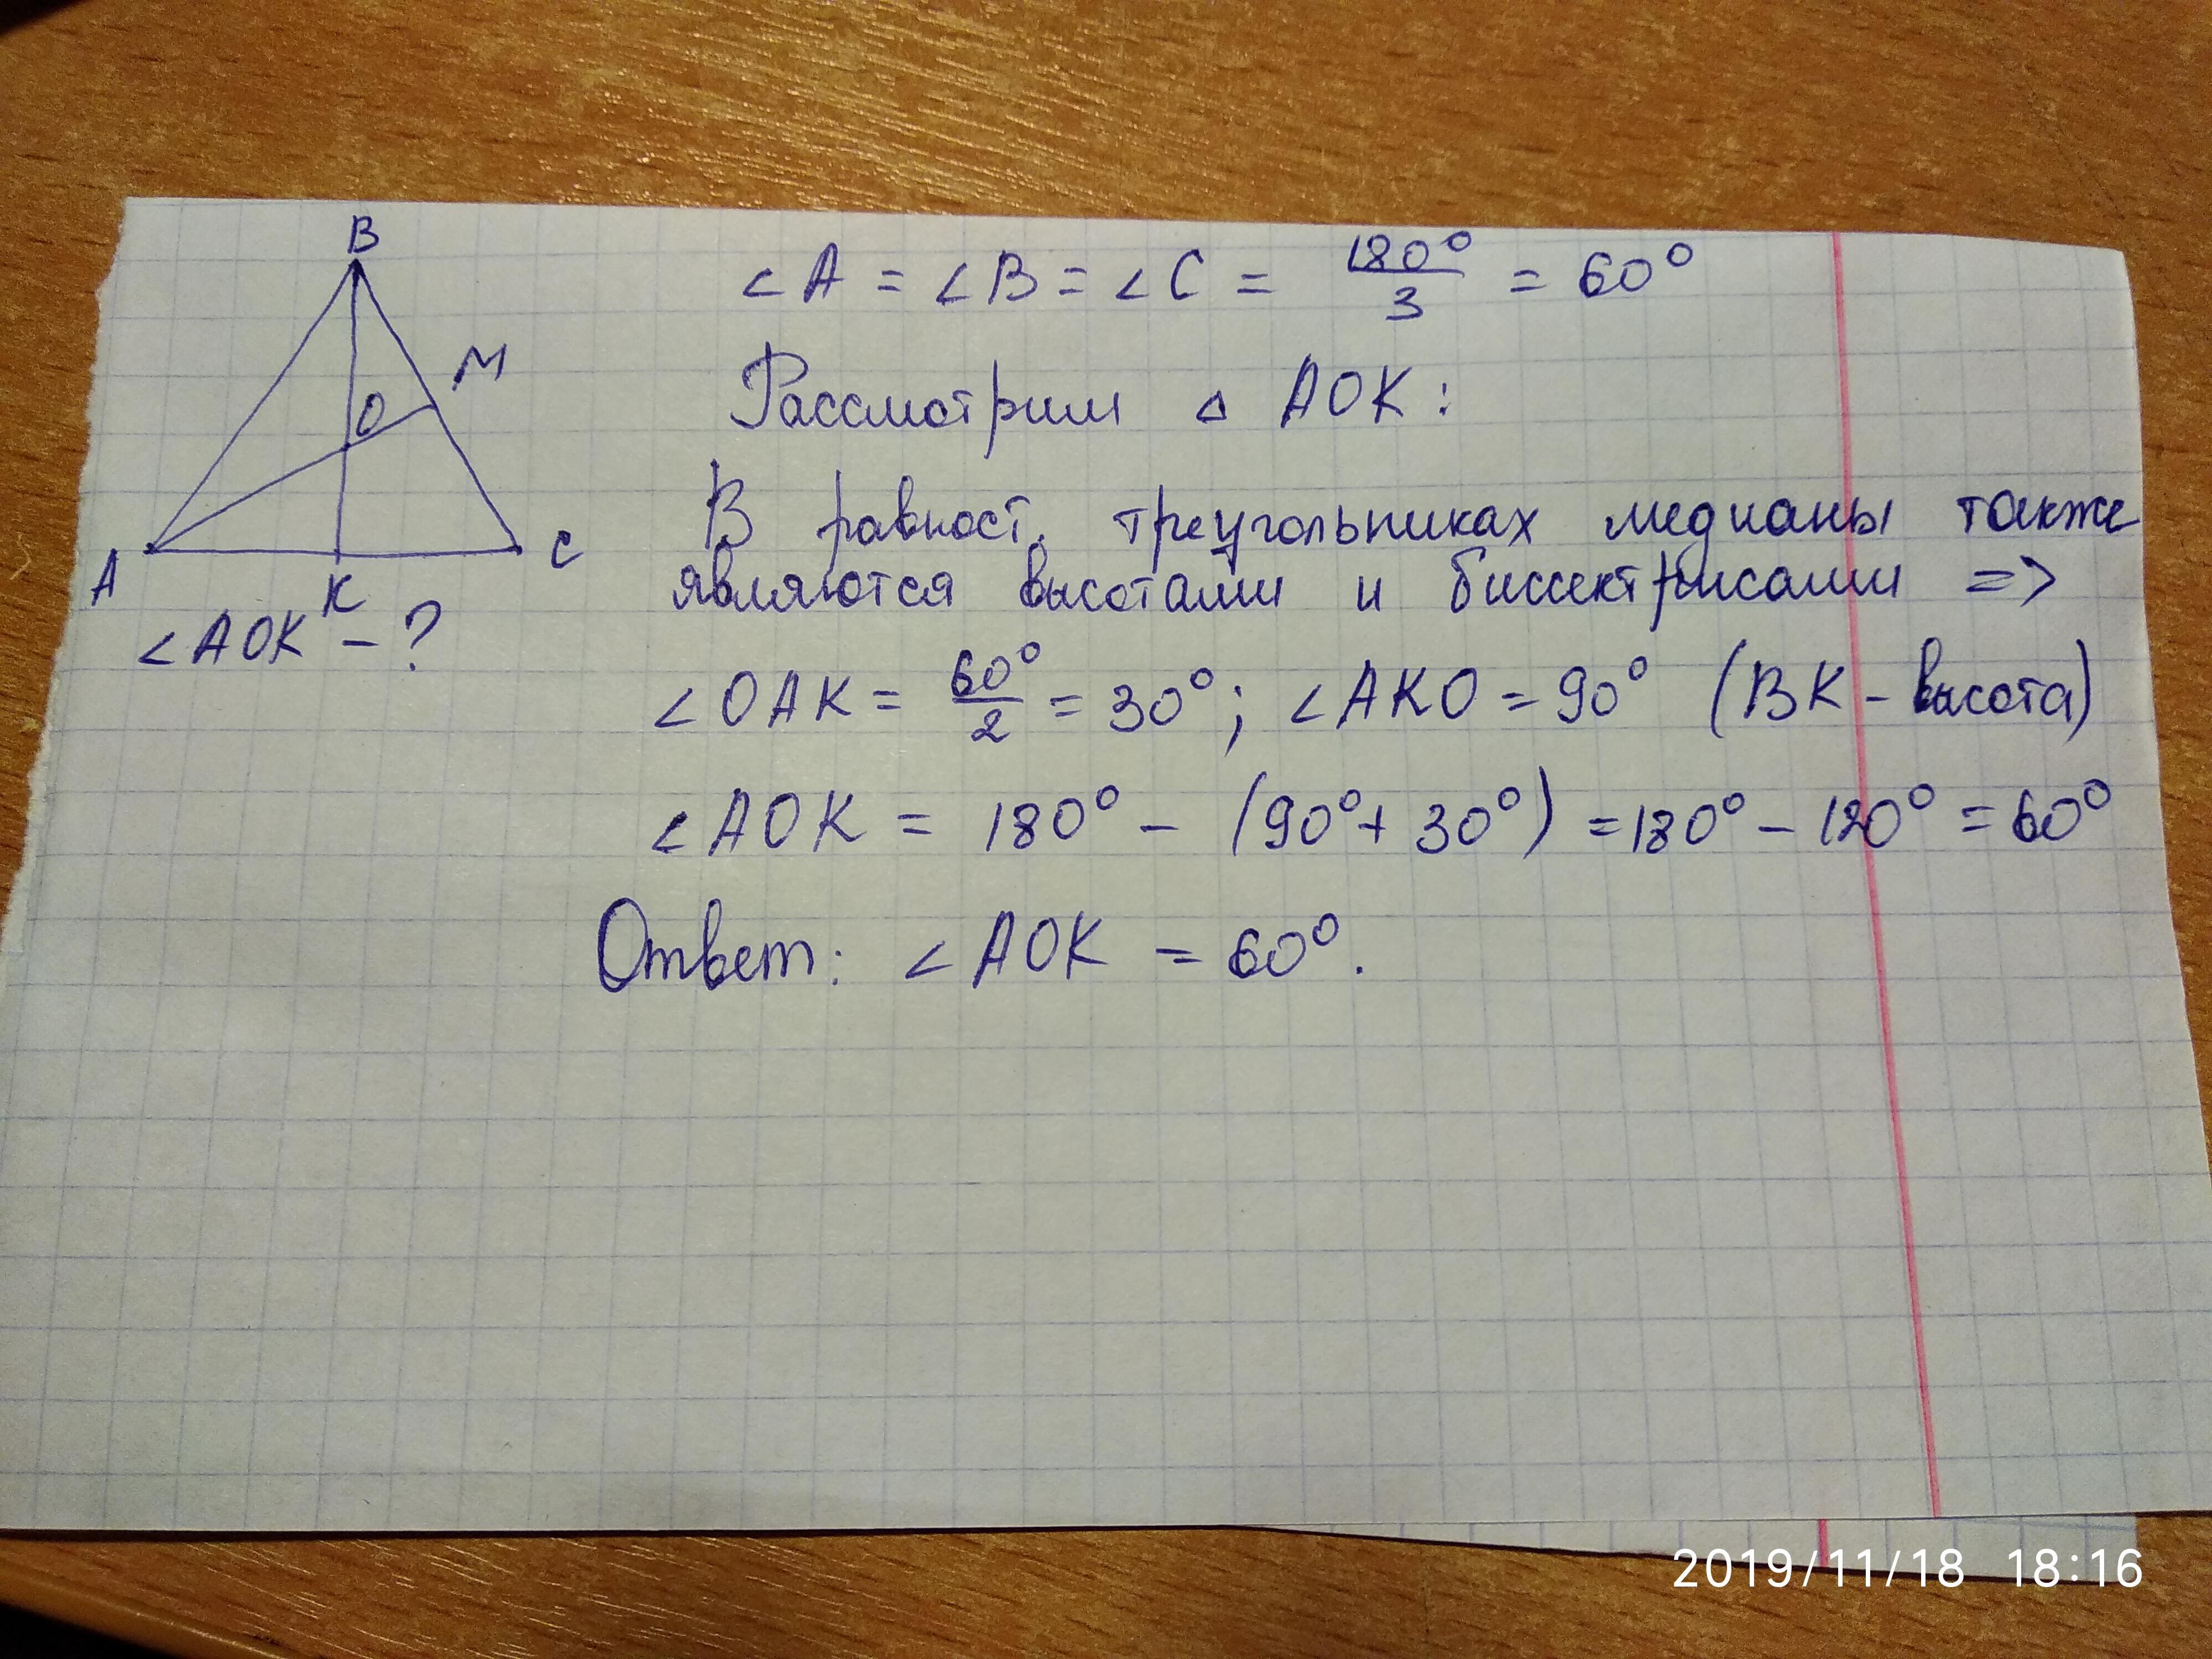 B
M
O
A
C
K
∠AOK - ?
∠A = ∠B = ∠C = 180°/3 = 60°
Рассмотрим △ AOK:
В равност. треугольниках медианы также
являются высотами и биссектрисами =>
∠OAK = 60°/2 = 30°; ∠AKO = 90° (BK - высота)
∠AOK = 180° - (90° + 30°) = 180° - 120° = 60°
Ответ: ∠AOK = 60°.
2019/11/18 18:16